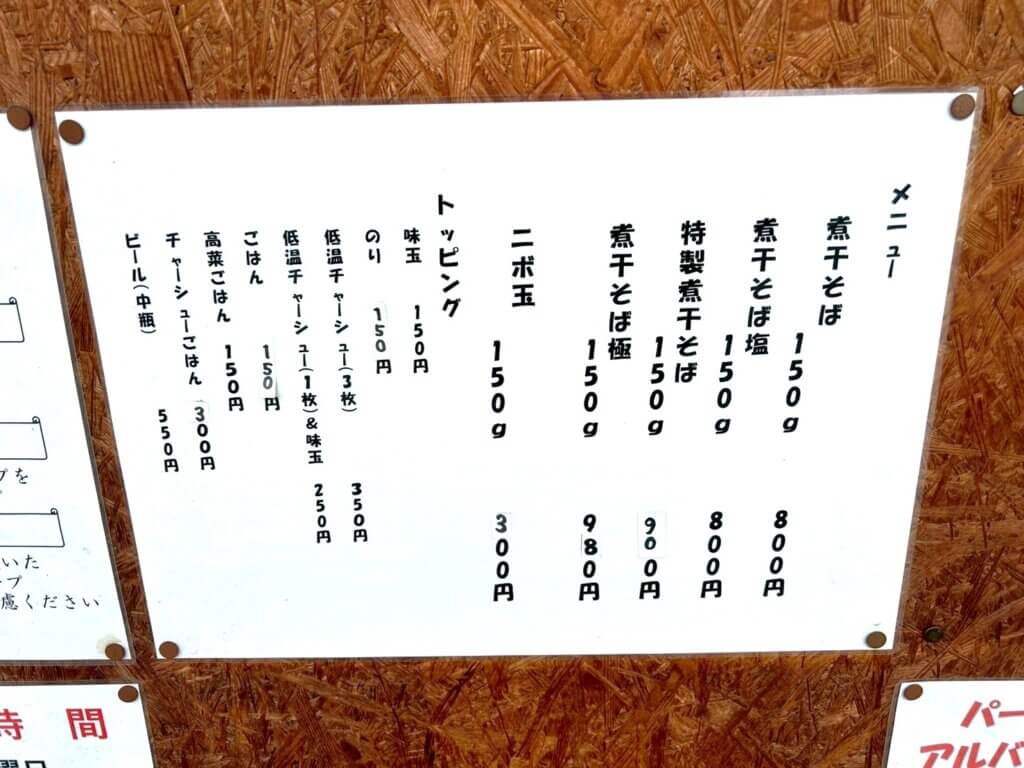 メニュー
煮干そば 150g 800円
煮干そば塩 150g 800円
特製煮干そば 150g 900円
煮干そば極 150g 980円
ニボ玉 150g 300円
トッピング
味玉 150円
のり 150円
低温チャーシュー(3枚) 350円
低温チャーシュー(1枚)&味玉 250円
ごはん 150円
高菜ごはん 150円
チャーシューごはん 300円
ビール(中瓶) 550円
プを
いた
ープ
慮ください
時間
曜日
パー
アルバ